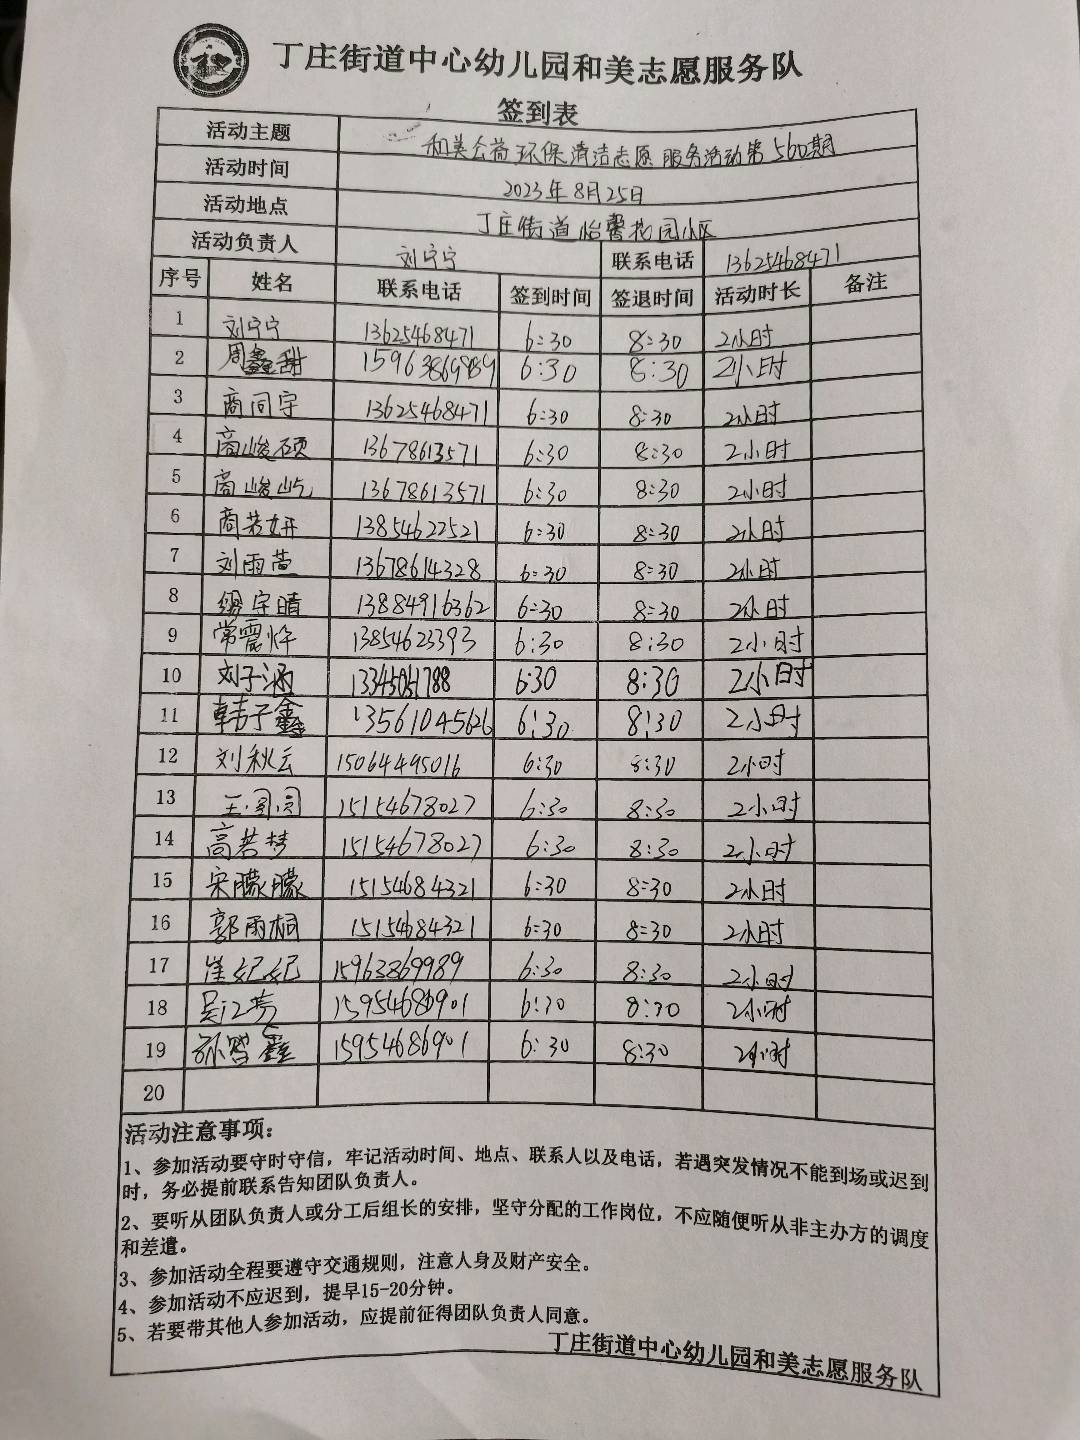 丁庄街道中心幼儿园和美志愿服务队
签到表
活动主题 和美公益环保清洁志愿服务活动第560期
活动时间 2023年8月25日
活动地点 丁庄街道怡馨花园小区
活动负责人 刘宁宁 联系电话 13625468471
序号 姓名 联系电话 签到时间 签退时间 活动时长 备注
1 刘宁宁 13625468471 6:30 8:30 2小时
2 周鑫甜 15963869989 6:30 8:30 2小时
3 商同宇 13625468471 6:30 8:30 2小时
4 商峻硕 13678613571 6:30 8:30 2小时
5 商峻屹 13678613571 6:30 8:30 2小时
6 商若妍 13854622521 6:30 8:30 2小时
7 刘雨萱 13678614328 6:30 8:30 2小时
8 宇晴 13884916362 6:30 8:30 2小时
9 常震烨 13854623393 6:30 8:30 2小时
10 刘子涵 13345051788 6:30 8:30 2小时
11 韩子鑫 13561045626 6:30 8:30 2小时
12 刘秋云 15064495016 6:30 8:30 2小时
13 王圆圆 15154678027 6:30 8:30 2小时
14 高若梦 15154678027 6:30 8:30 2小时
15 宋朦朦 15154684321 6:30 8:30 2小时
16 郭雨桐 15154684321 6:30 8:30 2小时
17 崔妃妃 15963869989 6:30 8:30 2小时
18 吴江梦 15954686901 6:30 8:30 2小时
19 孙 鑫 15954686901 6:30 8:30 2小时
20
活动注意事项：
1、参加活动要守时守信，牢记活动时间、地点、联系人以及电话，若遇突发情况不能到场或迟到
时，务必提前联系告知团队负责人。
2、要听从团队负责人或分工后组长的安排，坚守分配的工作岗位，不应随便听从非主办方的调度
和差遣。
3、参加活动全程要遵守交通规则，注意人身及财产安全。
4、参加活动不应迟到，提早15-20分钟。
5、若要带其他人参加活动，应提前征得团队负责人同意。
丁庄街道中心幼儿园和美志愿服务队